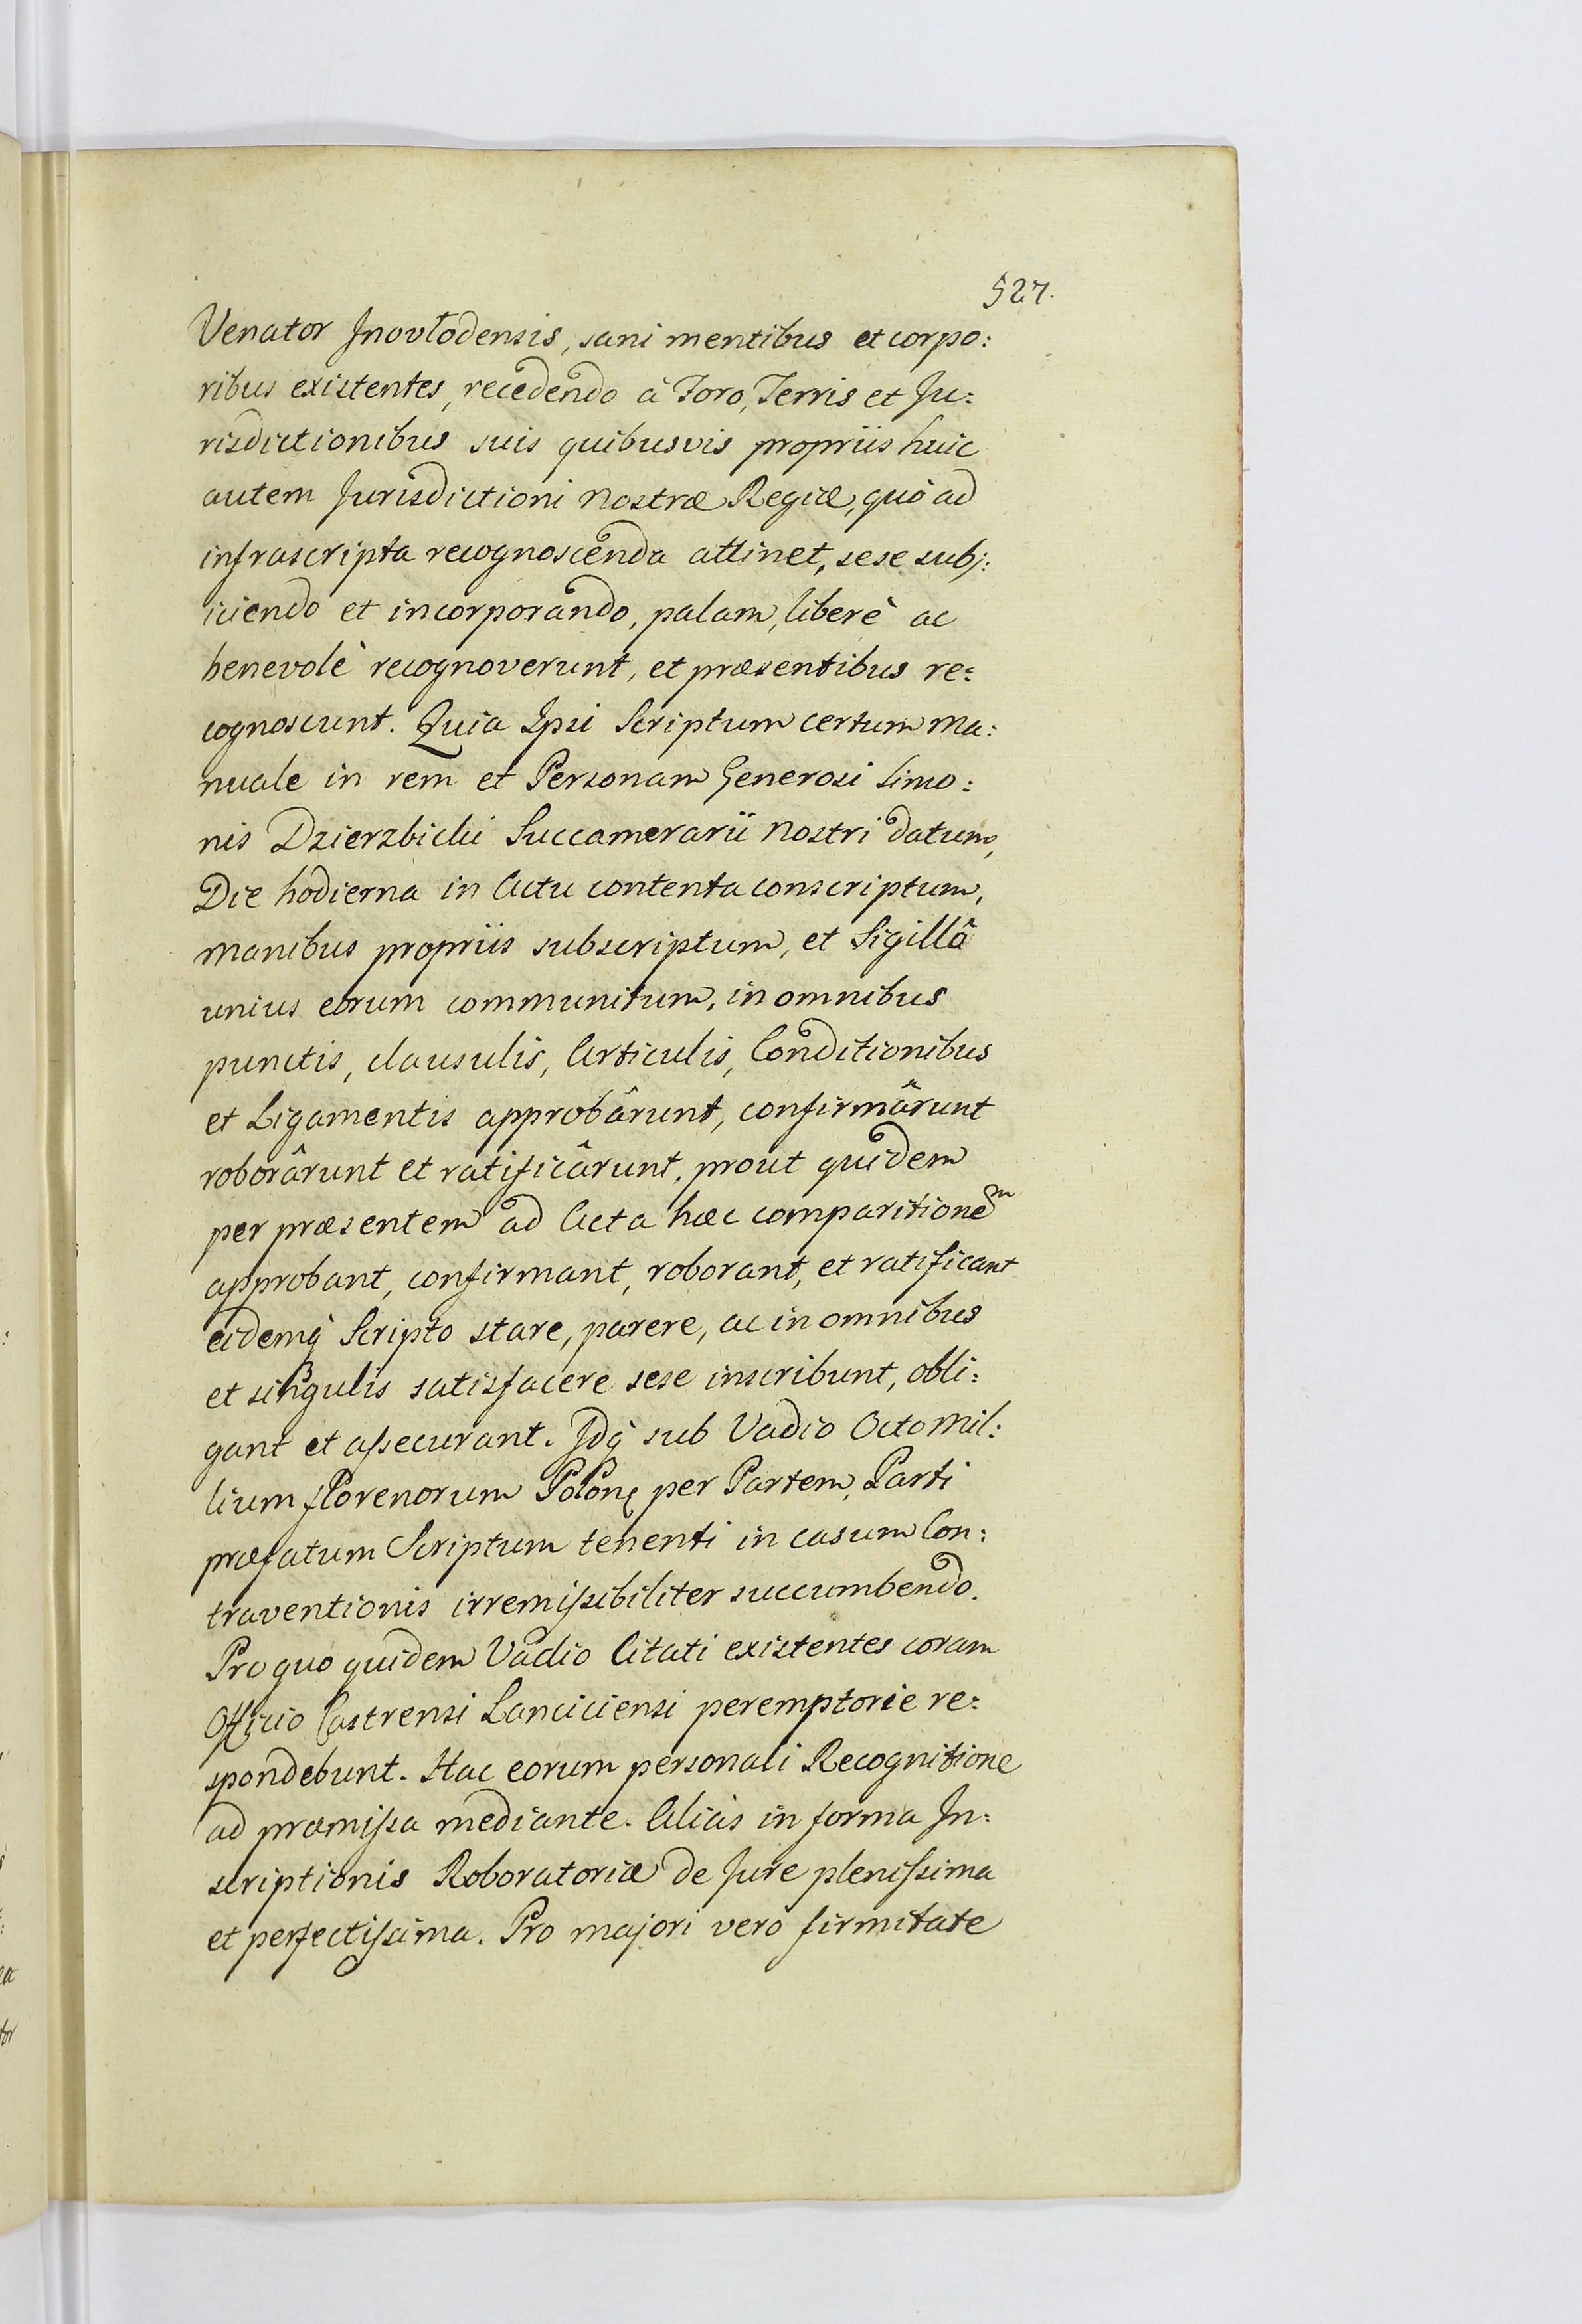 527.
Venator Inovłodensis, sani mentibus et corpo:
ribus existentes, recedendo à Foro, Terris et Ju:
risdictionibus suis quibusvis propriis huic
autem Jurisdictioni Nostræ Regiæ, quò ad
infrascripta recognoscenda attinet, sese subj:
iciendo et incorporando, palam, liberè ac
benevolè recognoverunt, et præsentibus re:
cognoscunt. Quia Ipsi Scriptum certum Ma:
nuale in rem et Personam Generosi Simo:
nis Dzierzbicki Succamerarii Nostri datum,
Die hodierna in Actu contenta conscriptum,
manibus propriis subscriptum, et Sigillô
unius eorum communitum, in omnibus
punctis, clausulis, Articulis, Conditionibus
et Ligamentis approbârunt, confirmârunt
roborârunt et ratificârunt, prout quidem
per præsentem ad Acta hæc comparitionem
approbant, confirmant, roborant, et ratificant
eidemq́ Scripto stare, parere, ac in omnibus
et singulis satisfacere sese inscribunt, obli:
gant et assecurant. Idq́ sub Vadio Octo Mil:
lium florenorum Polonę per Partem, Parti
præfatum Scriptum tenenti in casum Con:
traventionis irremissibiliter succumbendo.
Pro quo quidem Vadio Citati existentes coram
Officio Castrensi Lanciciensi peremptorie re:
spondebunt. Hac eorum personali Recognitione
ad præmissa mediante. Aliàs in forma In:
scriptionis Roboratoriæ de Jure plenissima
et perfectissima. Pro majori vero firmitate